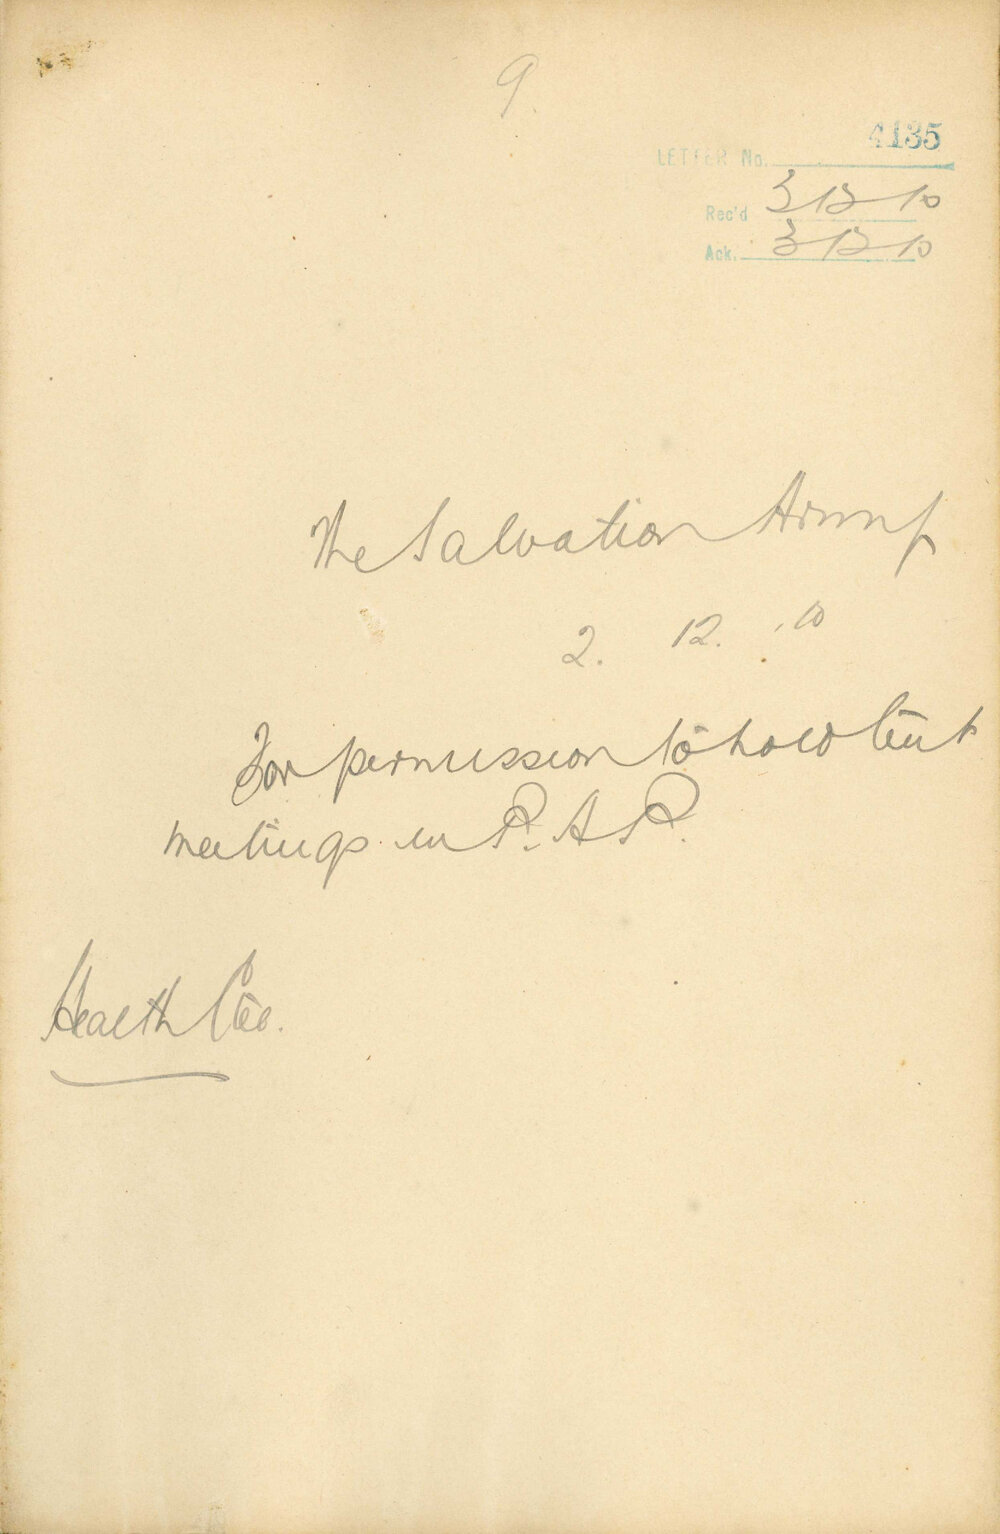 9.
4135
LETTER No.
Rec'd 3 12 10
Ack. 3 12 10
The Salvation Army
2. 12. 10
For permission to hold tent
meetings in P. A. R.
Health Ctee.